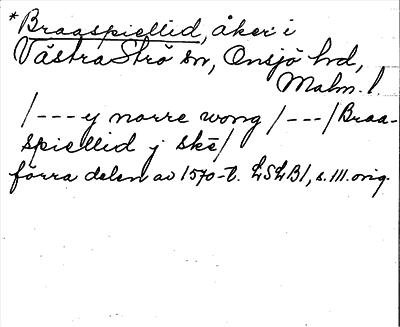 *Braaspiellid, åker i
Västra Strö sn, Onsjö hd,
Malm. l.
/---y norre wong /---/Braa-
spiellid j skē/
förra delen av 1570-t. LSLB1, s. 111. orig.